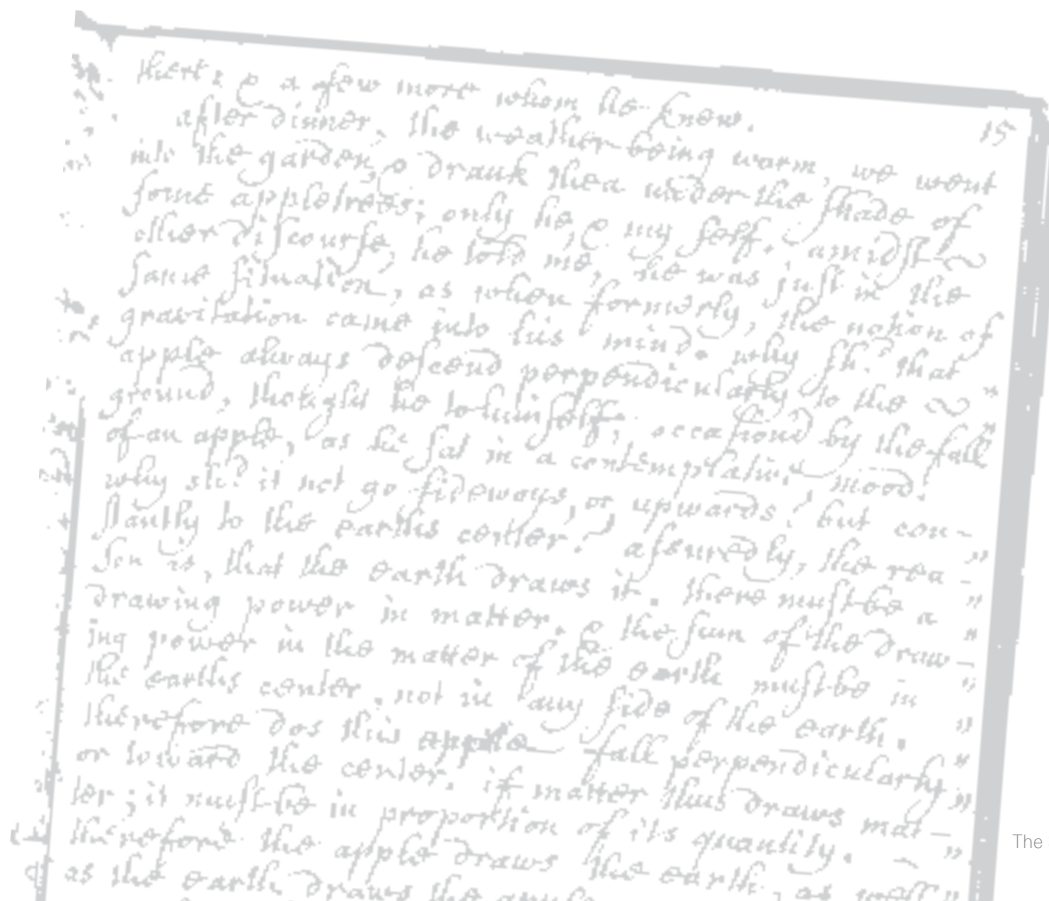 there; & a few more whom he knew.
15
after dinner, the weather being warm, we went
into the garden, & drank thea under the shade of
some appletrees; only he, & my self. amidst
other discourse, he told me, he was just in the
same situation, as when formerly, the notion of
gravitation came into his mind. why shd. that
apple always descend perpendicularly to the
ground, thought he to himself; occasion'd by the fall
of an apple, as he sat in a contemplative mood.
why shd. it not go sideways, or upwards? but con-
stantly to the earths center? assuredly, the rea-
son is, that the earth draws it. there must be a
drawing power in matter. & the sum of the draw-
ing power in the matter of the earth must be in
the earths center, not in any side of the earth.
therefore dos this apple fall perpendicularly
or toward the center. if matter thus draws mat-
ter; it must be in proportion of its quantity.
therefore the apple draws the earth, as well
as the earth draws the apple
The